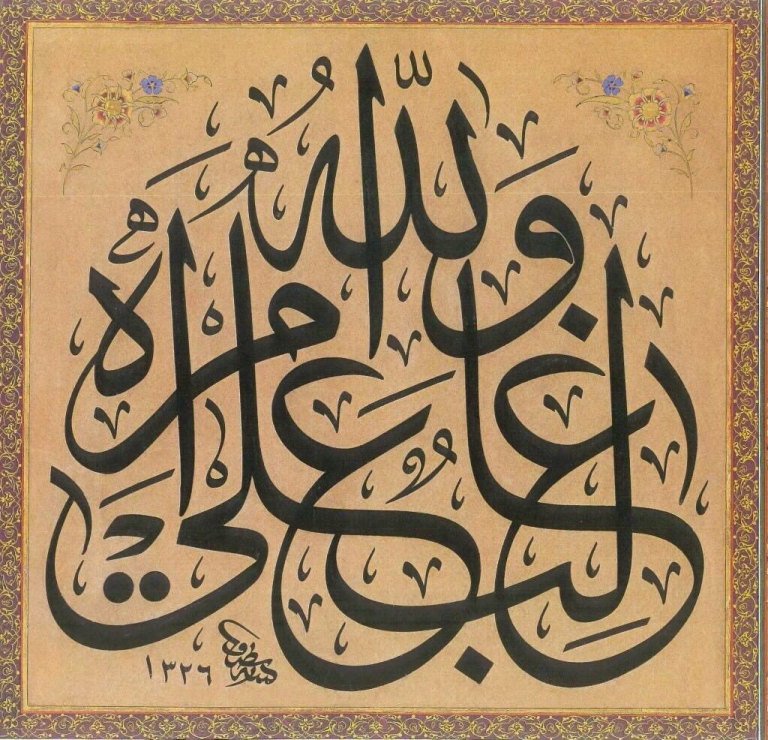 والله غالب على أمره
١٣٢٦